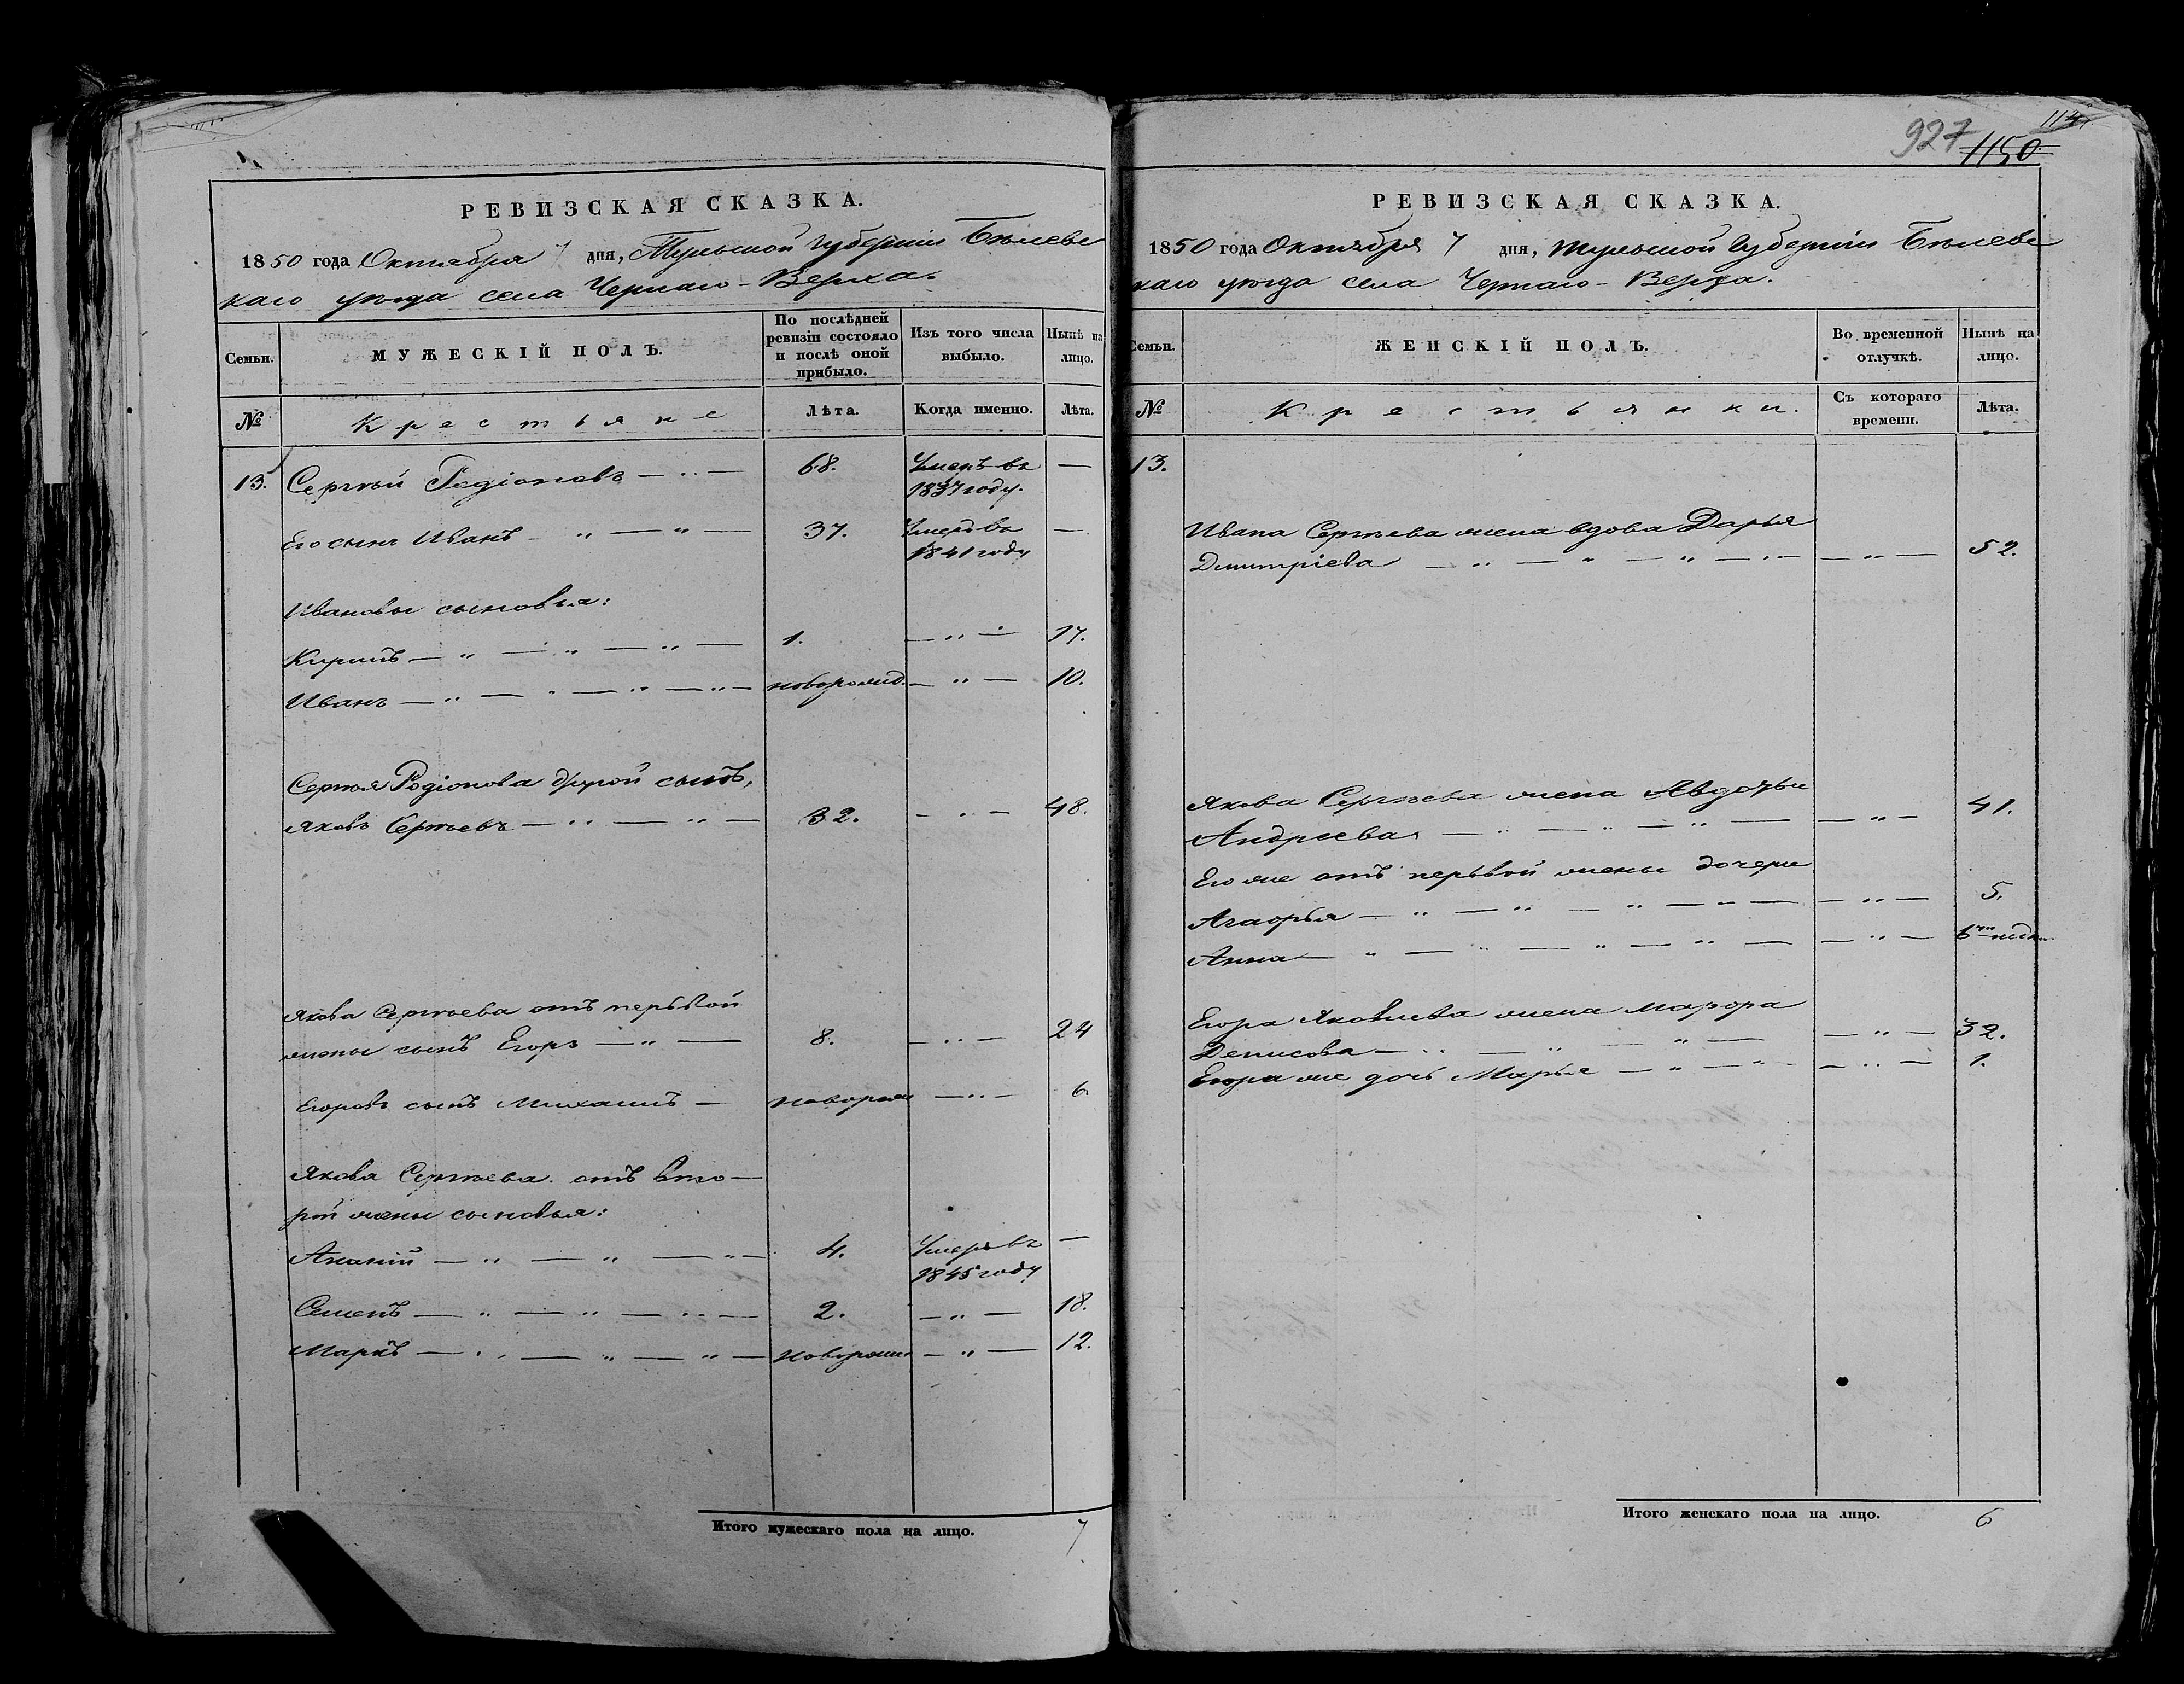 РЕВИЗСКАЯ СКАЗКА.
1850 года Октября 7 дня, Тульской губерніи Бѣлевс
каго уѣзда села Чернаго-Верха.
Семьи.
МУЖЕСКІЙ ПОЛЪ.
По послѣдней ревизіи состояло и послѣ оной прибыло.
Изъ того числа выбыло.
Нынѣ на лицо.
№
Крестьяне
Лѣта.
Когда именно.
Лѣта.
13. Сергѣй Родіоновъ — „ — 68. Умеръ въ —
1837 году.
Его сынъ Иванъ — „ — „ — 37. Умеръ въ —
1841 году
Ивановы сыновья:
Кирилъ — „ — „ — „ — 1. — „ — 17.
Иванъ — „ — „ — „ — „ — новорожд. — „ — 10.
Сергѣя Родіонова другой сынъ,
Яковъ Сергѣевъ — „ — „ — 32. — „ — 48.
Якова Сергѣева отъ первой
жены сынъ Егоръ — „ — 8. — „ — 24
Егоровъ сынъ Михаилъ — новорож — „ — 6
Якова Сергѣева отъ вто—
рой жены сыновья:
Ананій — „ — „ — „ — 4. Умеръ въ —
1845 году
Семенъ — „ — „ — „ — 2. — „ — 18.
Маркъ — „ — „ — „ — новорож — „ — 12.
Итого мужескаго пола на лицо. 7
927
1150
РЕВИЗСКАЯ СКАЗКА.
1850 года Октября 7 дня, Тульской Губерніи Бѣлевс
каго уѣзда села Чернаго-Верха.
Семьи.
ЖЕНСКІЙ ПОЛЪ.
Во временной отлучкѣ.
Нынѣ на лицо.
№
Крестьянки.
Съ котораго времени.
Лѣта.
13.
Ивана Сергѣева жена вдова Дарья
Дмитріева — „ — „ — „ — „ — — „ — 52.
Якова Сергѣева жена Авдотья
Андреева — „ — „ — „ — — „ — 41.
Его же отъ первой жены дочери
Агафья — „ — „ — „ — „ — — „ — 5.
Анна — „ — „ — „ — „ — — „ — 6
Егора Яковлева жена Марфа
Денисова — „ — „ — „ — — „ — 32.
Егора же дочь Марья — „ — „ — — „ — 1.
Итого женскаго пола на лицо. 6